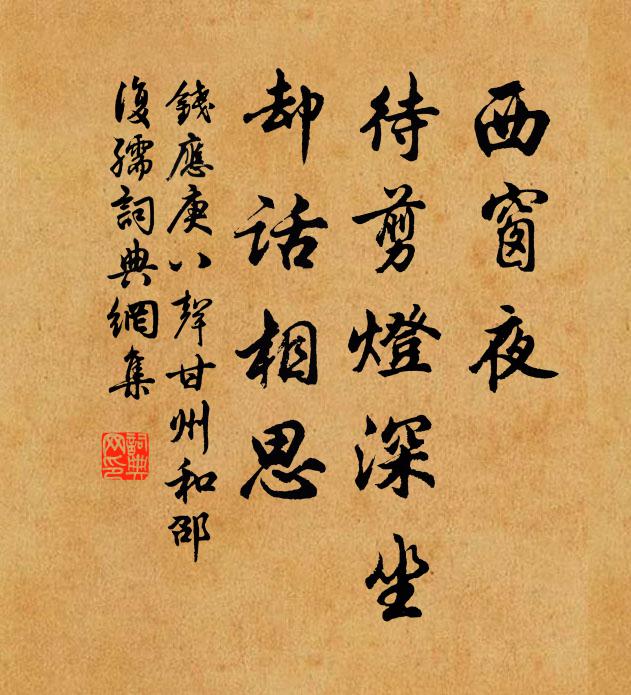 西窗夜
待剪燈深坐
却話相思
錢應庚八聲甘州和邵
復孺詞典網集
詞典網印